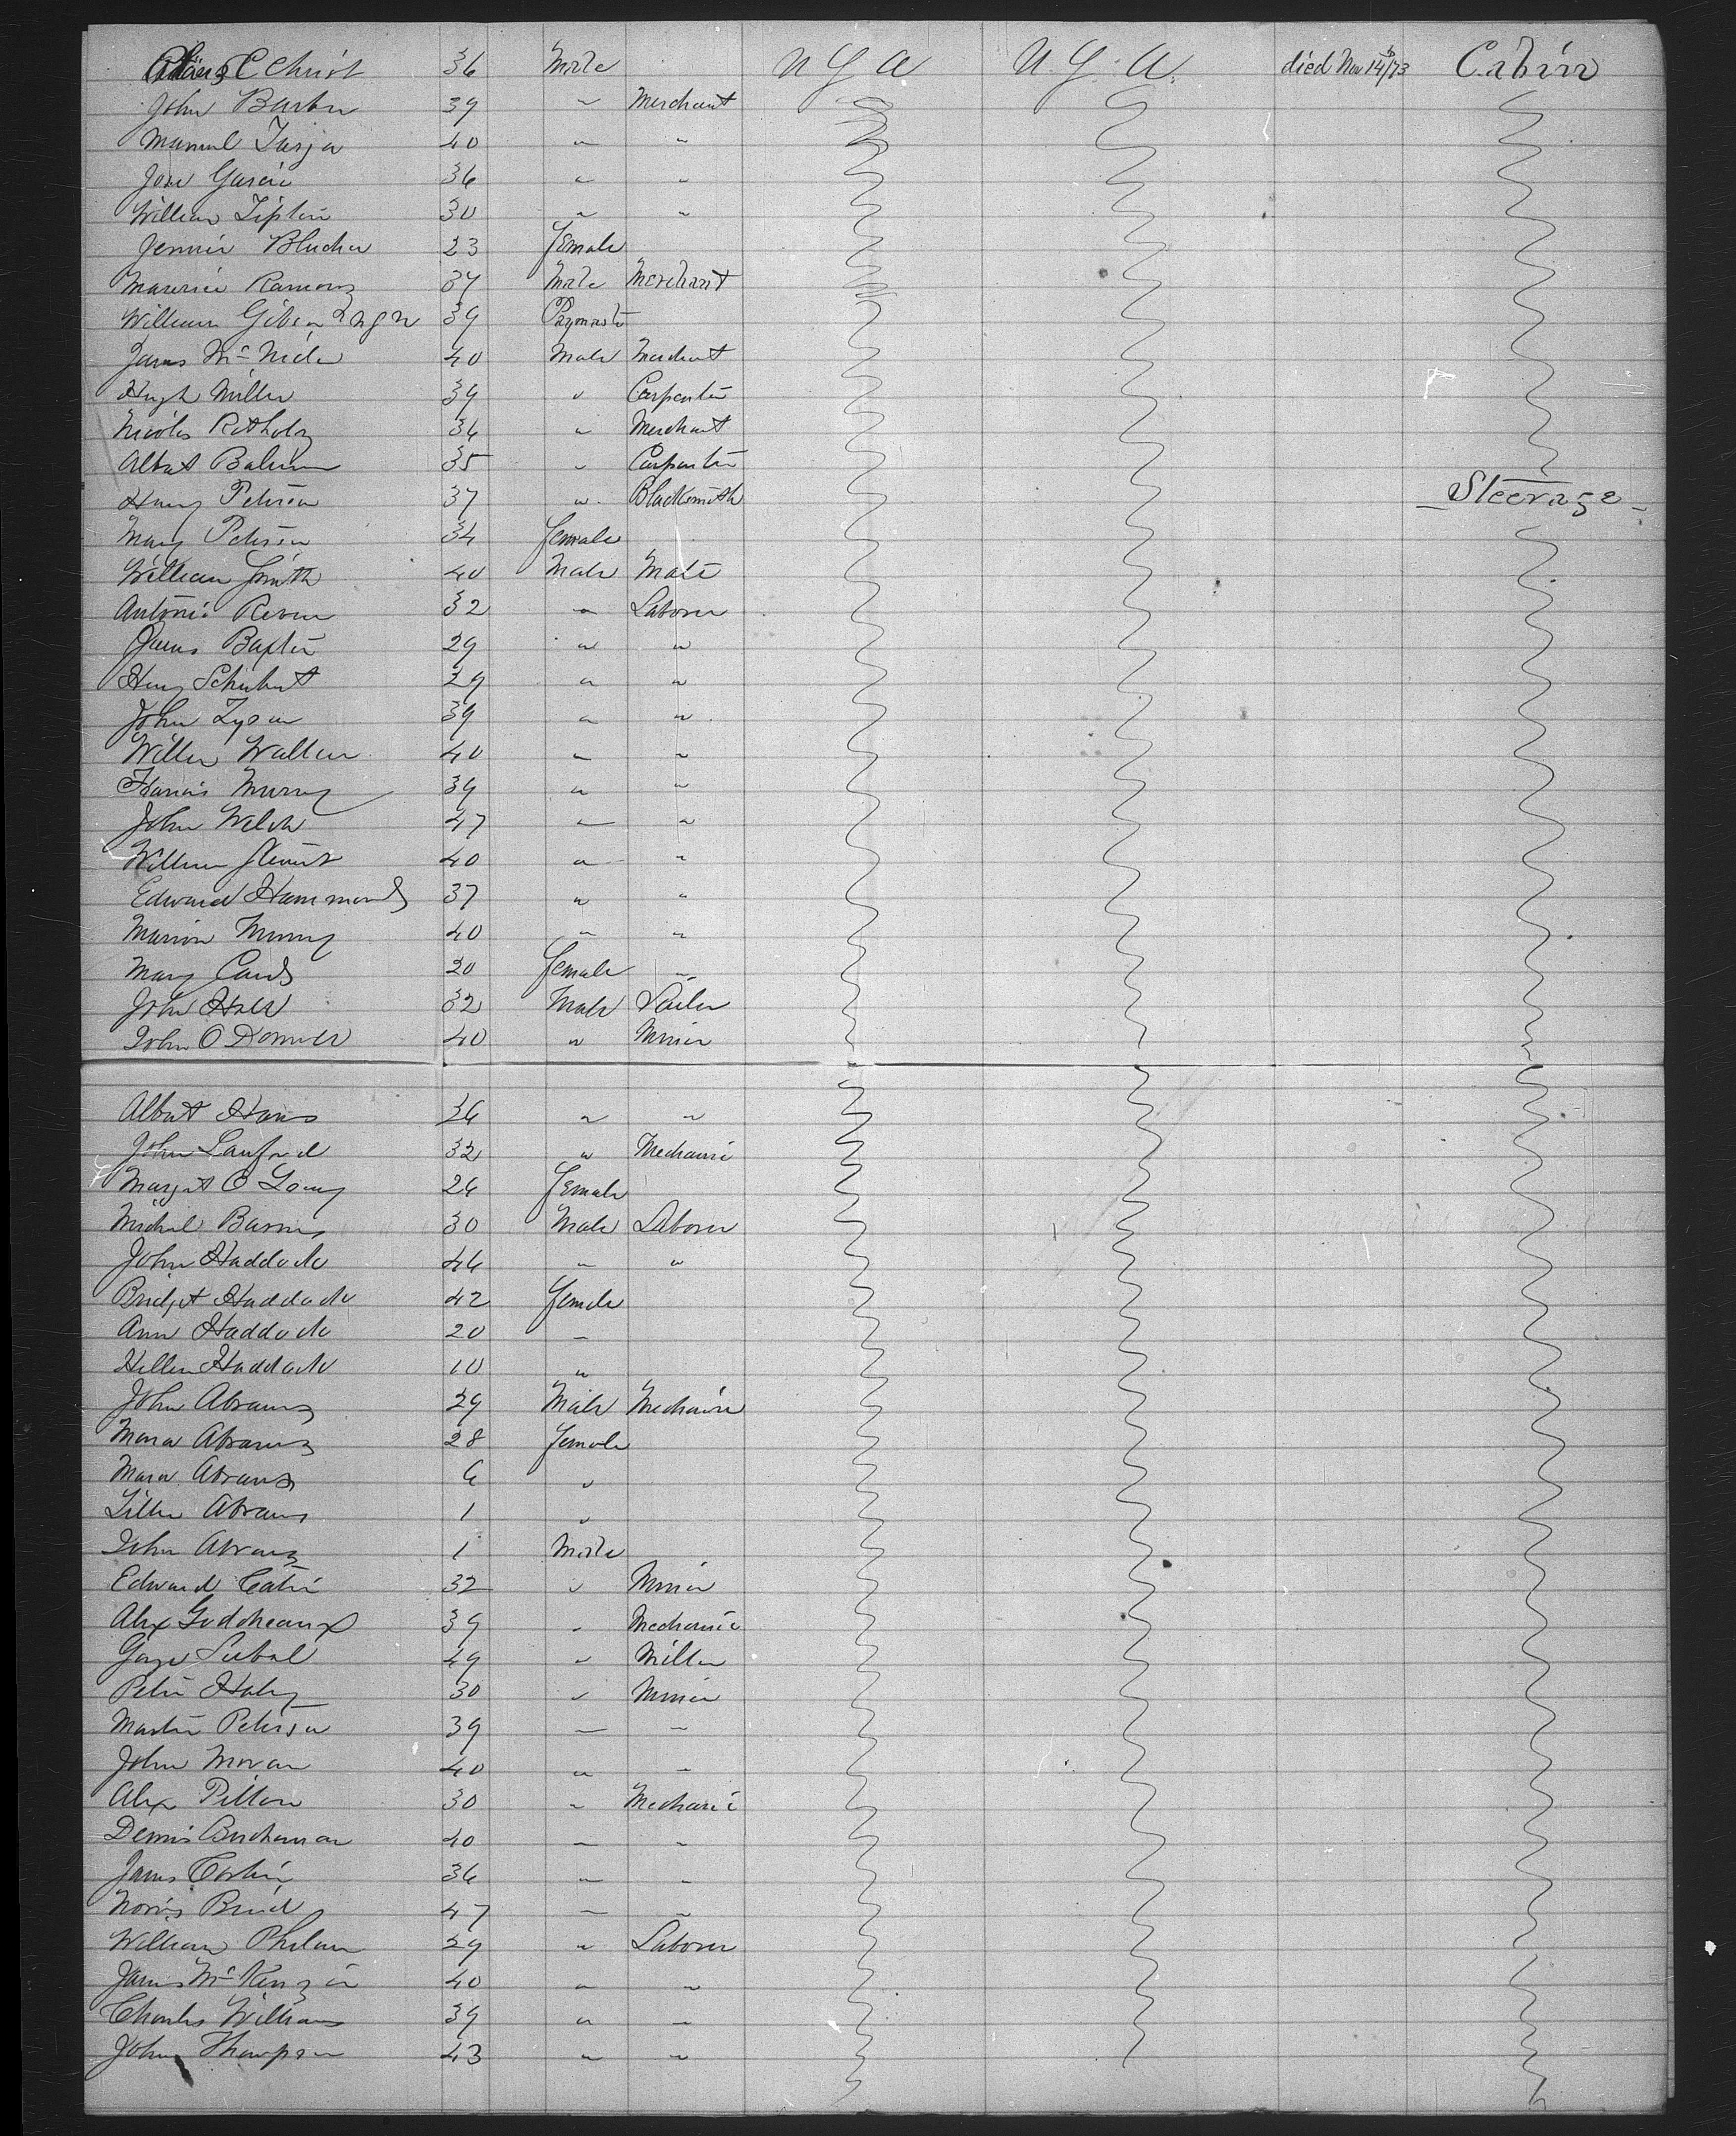 C Christ 36 Male U S A U. S. A. died Nov 14th/73 Cabin
John Barber 39 " Merchant
Manuel 40 " "
Jose Garcia 36 " "
William Tipton 30 " "
Jennie Blucher 23 Female
Maurice Ramony 37 Male Merchant
William Gibson U S N 39 Paymaster
James Mc 40 Male Merchant
Hugh Miller 39 " Carpenter
Nicoles Rothholz 36 " Merchant
Albert 35 " Carpenter
Henry Peterson 37 " Blacksmith Steerage
Mary Peterson 34 Female
William Smith 40 Male Mate
Antonio 32 " Laborer
James Baxter 29 " "
Henry Schubert 29 " "
John Tyson 39 " "
Walter 40 " "
Francis Murray 39 " "
John Welch 47 " "
William Stewart 40 " "
Edward Hammonds 37 " "
Marion Murray 40 " "
Mary 20 Female "
John Hall 32 Male Sailor
John O Donnell 40 " Miner
Albert Haws 36 " "
John Sanford 32 " Mechanic
Margret O 26 Female
Michel Barnes 30 Male Laborer
John Haddock 46 " "
Bridget Haddock 42 Female
Ann Haddock 20 "
Hellen Haddock 10 "
John Abrams 29 Male Mechanic
Mara Abrams 28 Female
Mara Abrams 6 "
Lillie Abrams 1 "
John Abrams 1 Male
Edward 32 " Miner
Alex Godcheaux 39 " Mechanic
George 49 " Miller
Peter Haley 30 " Miner
Martin Peterson 39 " "
John Moran 40 " "
Alex Pitton 30 " Mechanic
Dennis Buchanan 40 " "
James 36 " "
Norris 47 " "
William Phelan 29 " Laborer
James McKenzie 40 " "
Charles Williams 39 " "
John Thompson 43 " "